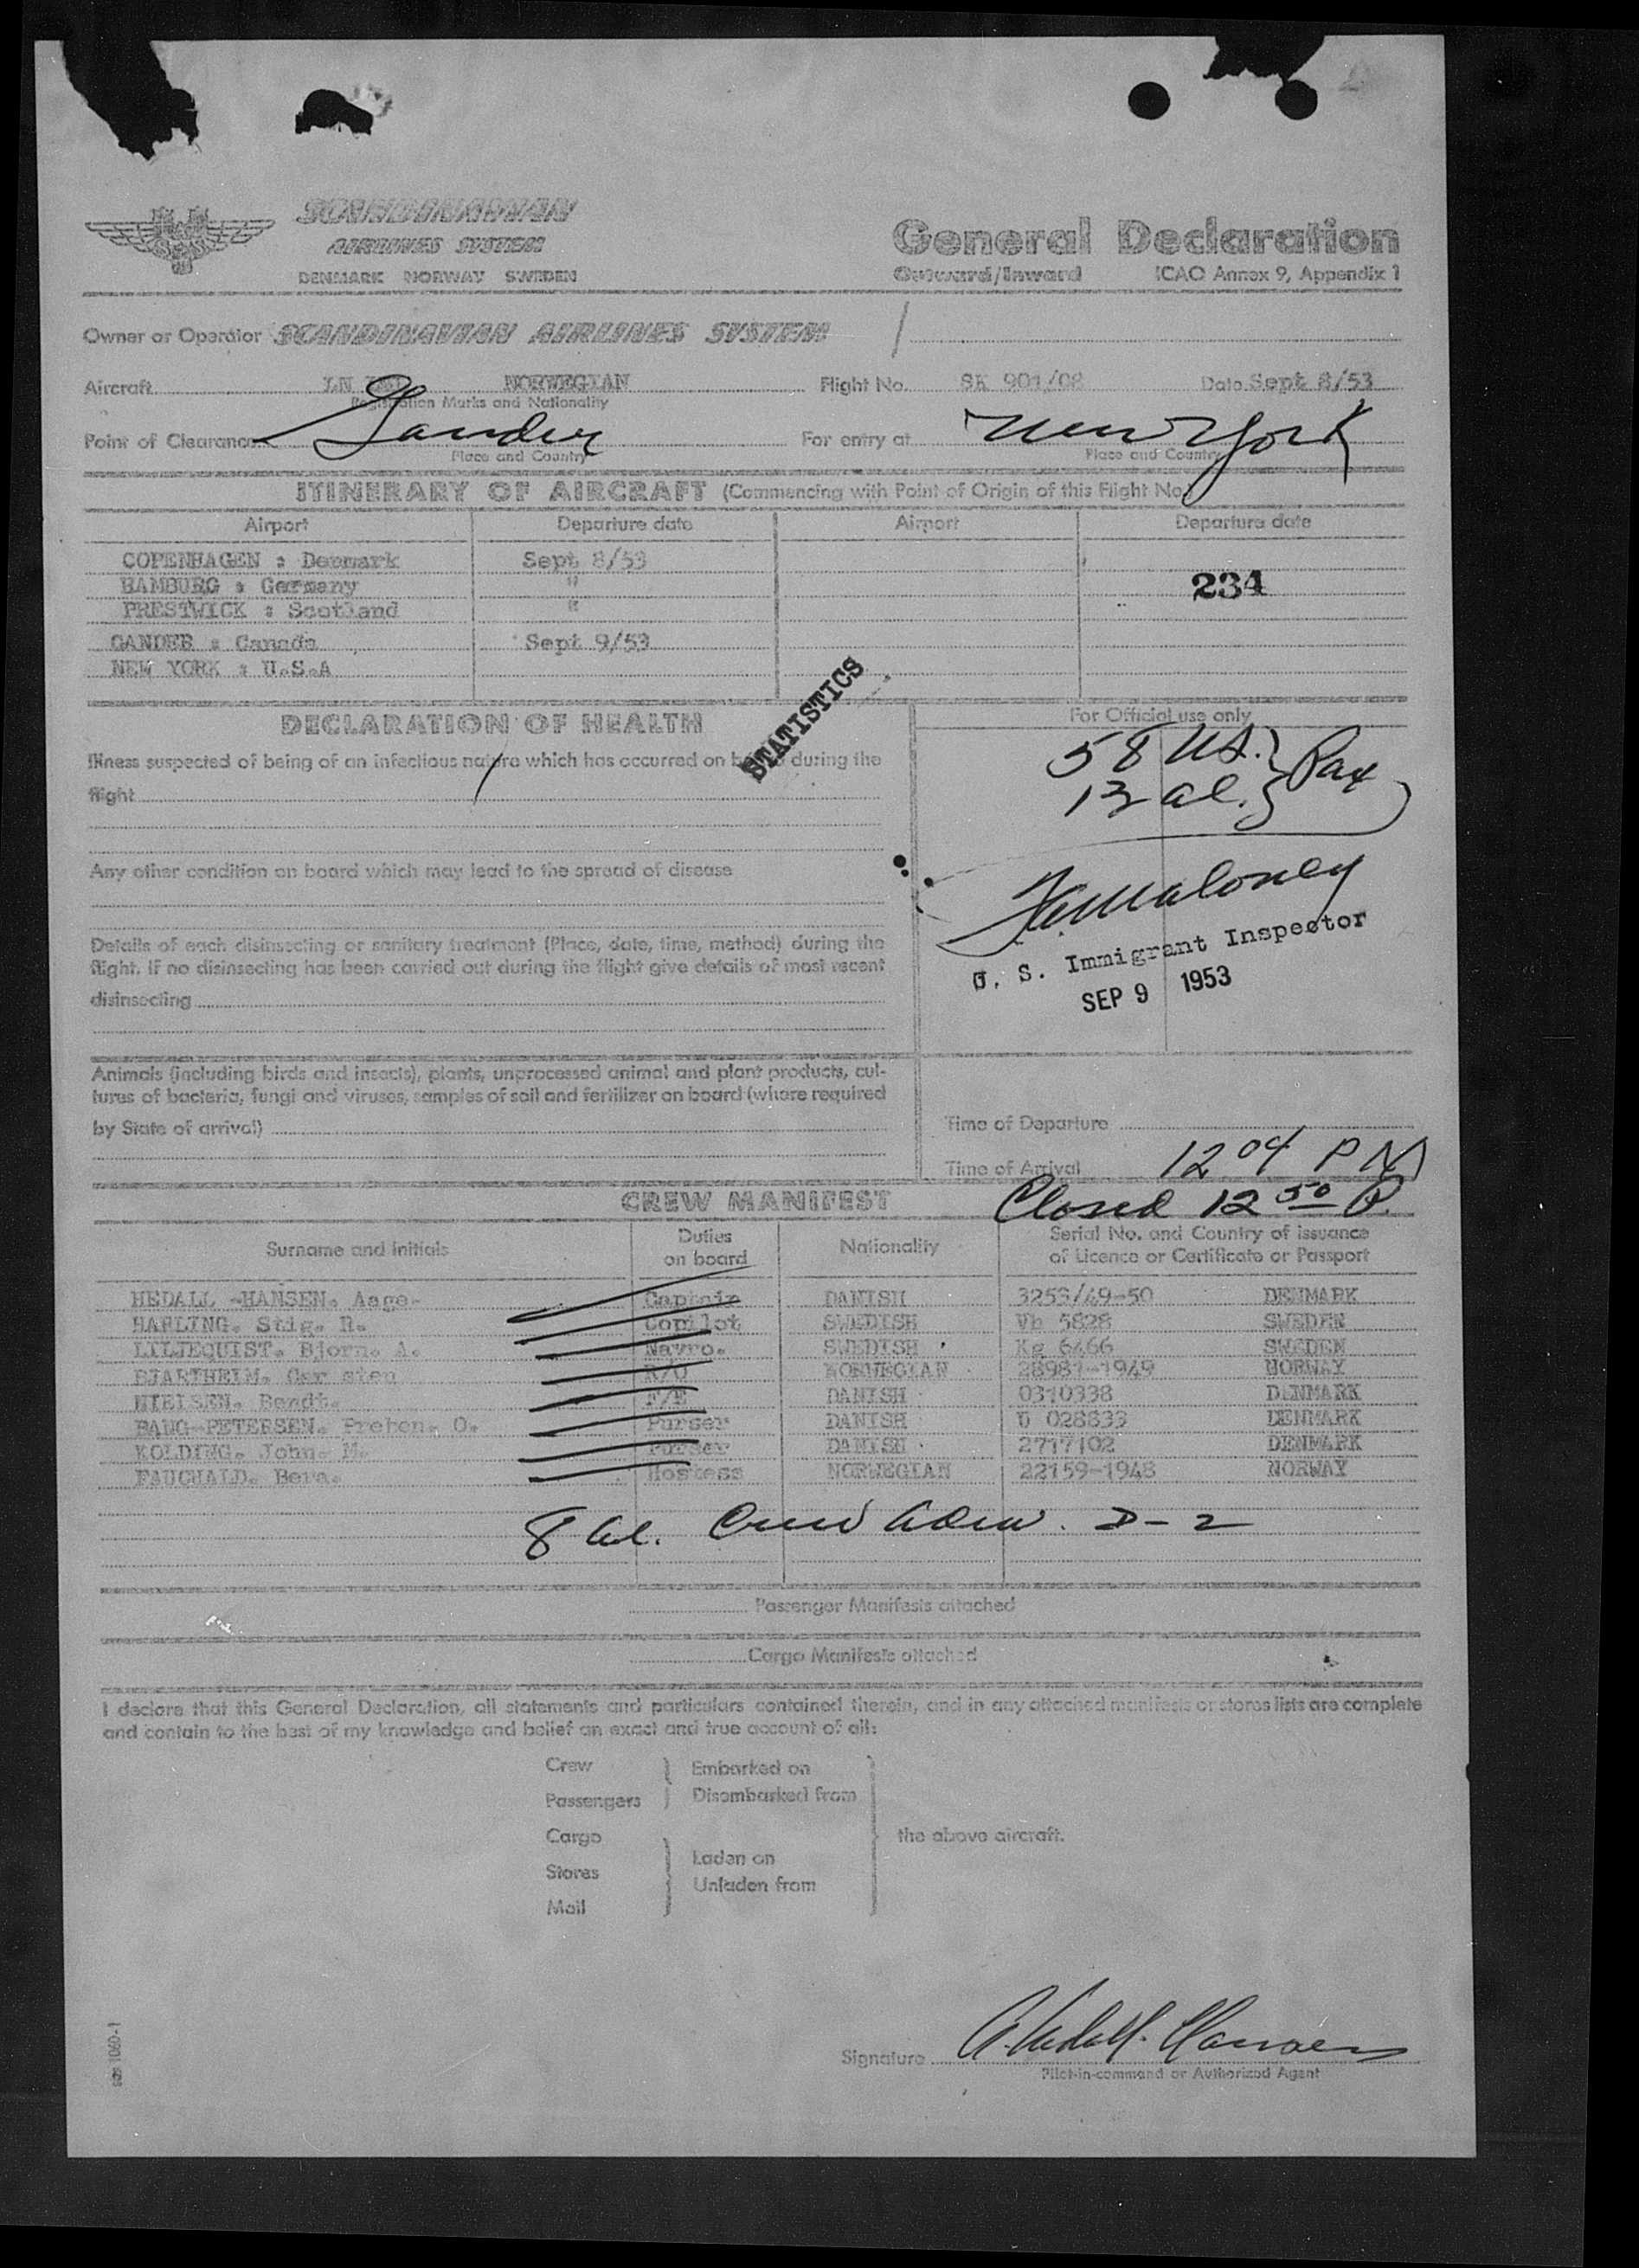 SCANDINAVIAN
AIRLINES SYSTEM
DENMARK NORWAY SWEDEN
General Declaration
Outward/Inward ICAO Annex 9, Appendix 1
Owner or Operator SCANDINAVIAN AIRLINES SYSTEM
Aircraft LN NORWEGIAN Flight No. SK 901/08 Date Sept 8/53
Registration Marks and Nationality
Point of Clearance Gander For entry at New York
Place and Country Place and Country
ITINERARY OF AIRCRAFT (Commencing with Point of Origin of this Flight No.)
Airport Departure date Airport Departure date
COPENHAGEN : Denmark Sept 8/53
HAMBURG : Germany " 234
PRESTWICK : Scotland "
GANDER : Canada Sept 9/53
NEW YORK : U.S.A
STATISTICS
DECLARATION OF HEALTH
Illness suspected of being of an infectious nature which has occurred on board during the
flight
Any other condition on board which may lead to the spread of disease
Details of each disinsecting or sanitary treatment (Place, date, time, method) during the
flight. If no disinsecting has been carried out during the flight give details of most recent
disinsecting
Animals (including birds and insects), plants, unprocessed animal and plant products, cul-
tures of bacteria, fungi and viruses, samples of soil and fertilizer on board (where required
by State of arrival)
For Official use only
58 US. } Pax
13 al. }
Maloney
U. S. Immigrant Inspector
SEP 9 1953
Time of Departure
Time of Arrival 12 04 PM
Closed 12 50 P.
CREW MANIFEST
Surname and Initials Duties on board Nationality Serial No. and Country of issuance
of Licence or Certificate or Passport
HEDALL -HANSEN. Aage- Captain DANISH 3253/49-50 DENMARK
HARLING. Stig. R. Copilot SWEDISH Vb 5828 SWEDEN
LILJEQUIST. Bjorn. A. Navro. SWEDISH Kg 6466 SWEDEN
BJARTHEIM. Car sten R/O NORWEGIAN 28981-1949 NORWAY
NIELSEN. Bendt. F/E DANISH 0310338 DENMARK
BANG-PETERSEN. Preben. O. Purser DANISH U 028833 DENMARK
KOLDING. John. M. Purser DANISH 2717102 DENMARK
FAUCHALD. Bera. Hostess NORWEGIAN 22159-1948 NORWAY
8 al. Crew Adm. D-2
Passenger Manifests attached
Cargo Manifests attached
I declare that this General Declaration, all statements and particulars contained therein, and in any attached manifests or stores lists are complete
and contain to the best of my knowledge and belief an exact and true account of all:
Crew } Embarked on
Passengers } Disembarked from
Cargo the above aircraft.
Stores Laden on
Mail Unladen from
Signature A. Hedall-Hansen
Pilot-in-command or Authorized Agent
1060-1